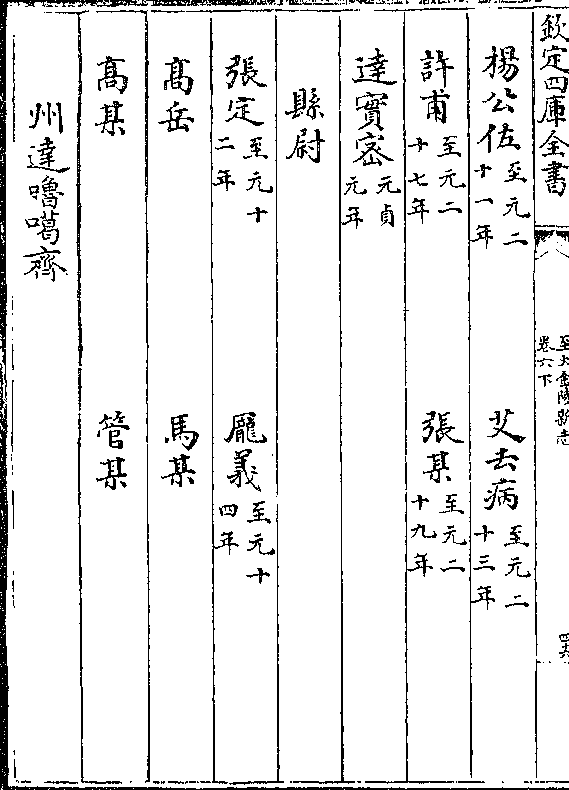 欽定四庫全書
至大金陵新志
卷六下
楊公佐至元二十一年 艾去病至元二十三年
許甫至元二十七年 張某至元二十九年
達實密元貞元年
縣尉
張定至元十二年 龎義至元十四年
髙岳 馬某
髙某 管某
州達嚕噶齊